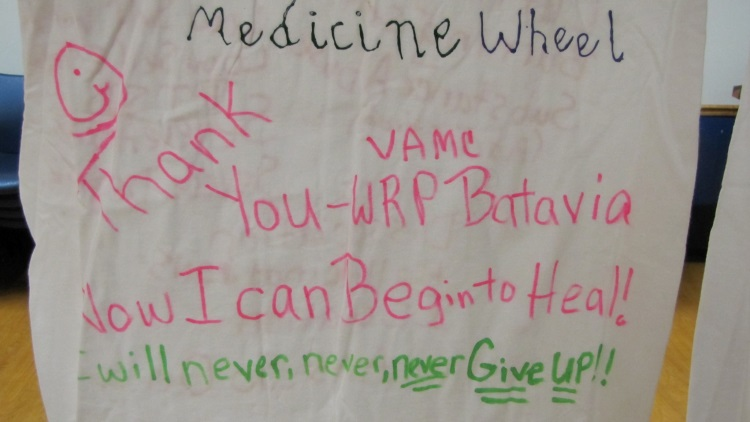 Medicine Wheel
Thank
VAMC
You-WRP Batavia
Now I can Begin to Heal!
I will never, never, never Give up!!